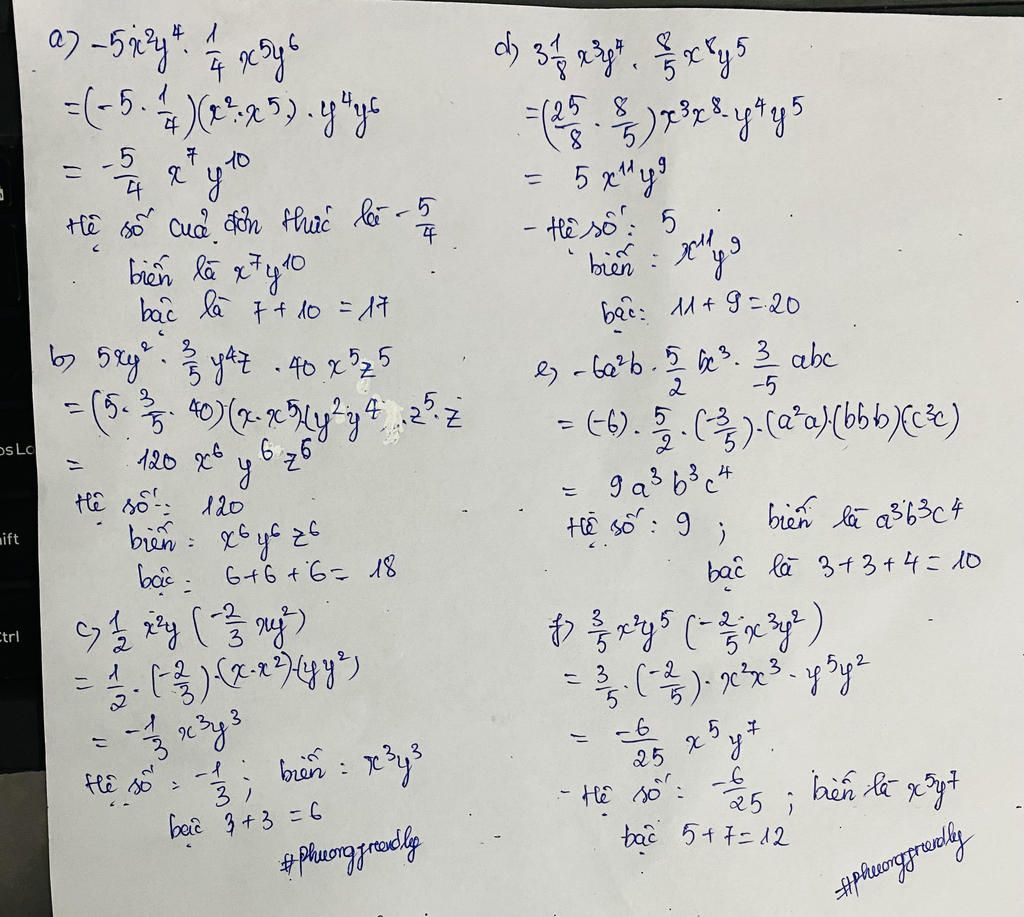 a) -5x²y⁴ . 1/4 x⁵y⁶
= (-5 . 1/4)(x² . x⁵) . y⁴y⁶
= -5/4 x⁷ y¹⁰
Hệ số của đơn thức là -5/4
biến là x⁷y¹⁰
bậc là 7 + 10 = 17
b) 5xy² . 3/5 y⁴z . 40 x⁵z⁵
= (5 . 3/5 . 40)(x . x⁵)(y²y⁴) . z⁵ . z
= 120 x⁶ y⁶ z⁶
Hệ số : 120
biến : x⁶y⁶z⁶
bậc : 6 + 6 + 6 = 18
c) 1/2 x²y (-2/3 xy²)
= 1/2 . (-2/3) . (x . x²) . (yy²)
= -1/3 x³y³
Hệ số : -1/3 ; biến : x³y³
bậc 3 + 3 = 6
#phuongfreendly
d) 3 1/8 x³y⁴ . 8/5 x⁸y⁵
= (25/8 . 8/5) x³x⁸ . y⁴y⁵
= 5 x¹¹y⁹
- Hệ số : 5
biến : x¹¹y⁹
bậc : 11 + 9 = 20
e) -6a²b . 5/2 bc³ . 3/-5 abc
= (-6) . 5/2 . (-3/5) . (a²a) . (bbb)(c³c)
= 9a³b³c⁴
Hệ số : 9 ; biến là a³b³c⁴
bậc là 3 + 3 + 4 = 10
f) 3/5 x²y⁵ (-2/5 x³y²)
= 3/5 . (-2/5) . x²x³ . y⁵y²
= -6/25 x⁵y⁷
- Hệ số : -6/25 ; biến là x⁵y⁷
bậc 5 + 7 = 12
#phuongfreendly